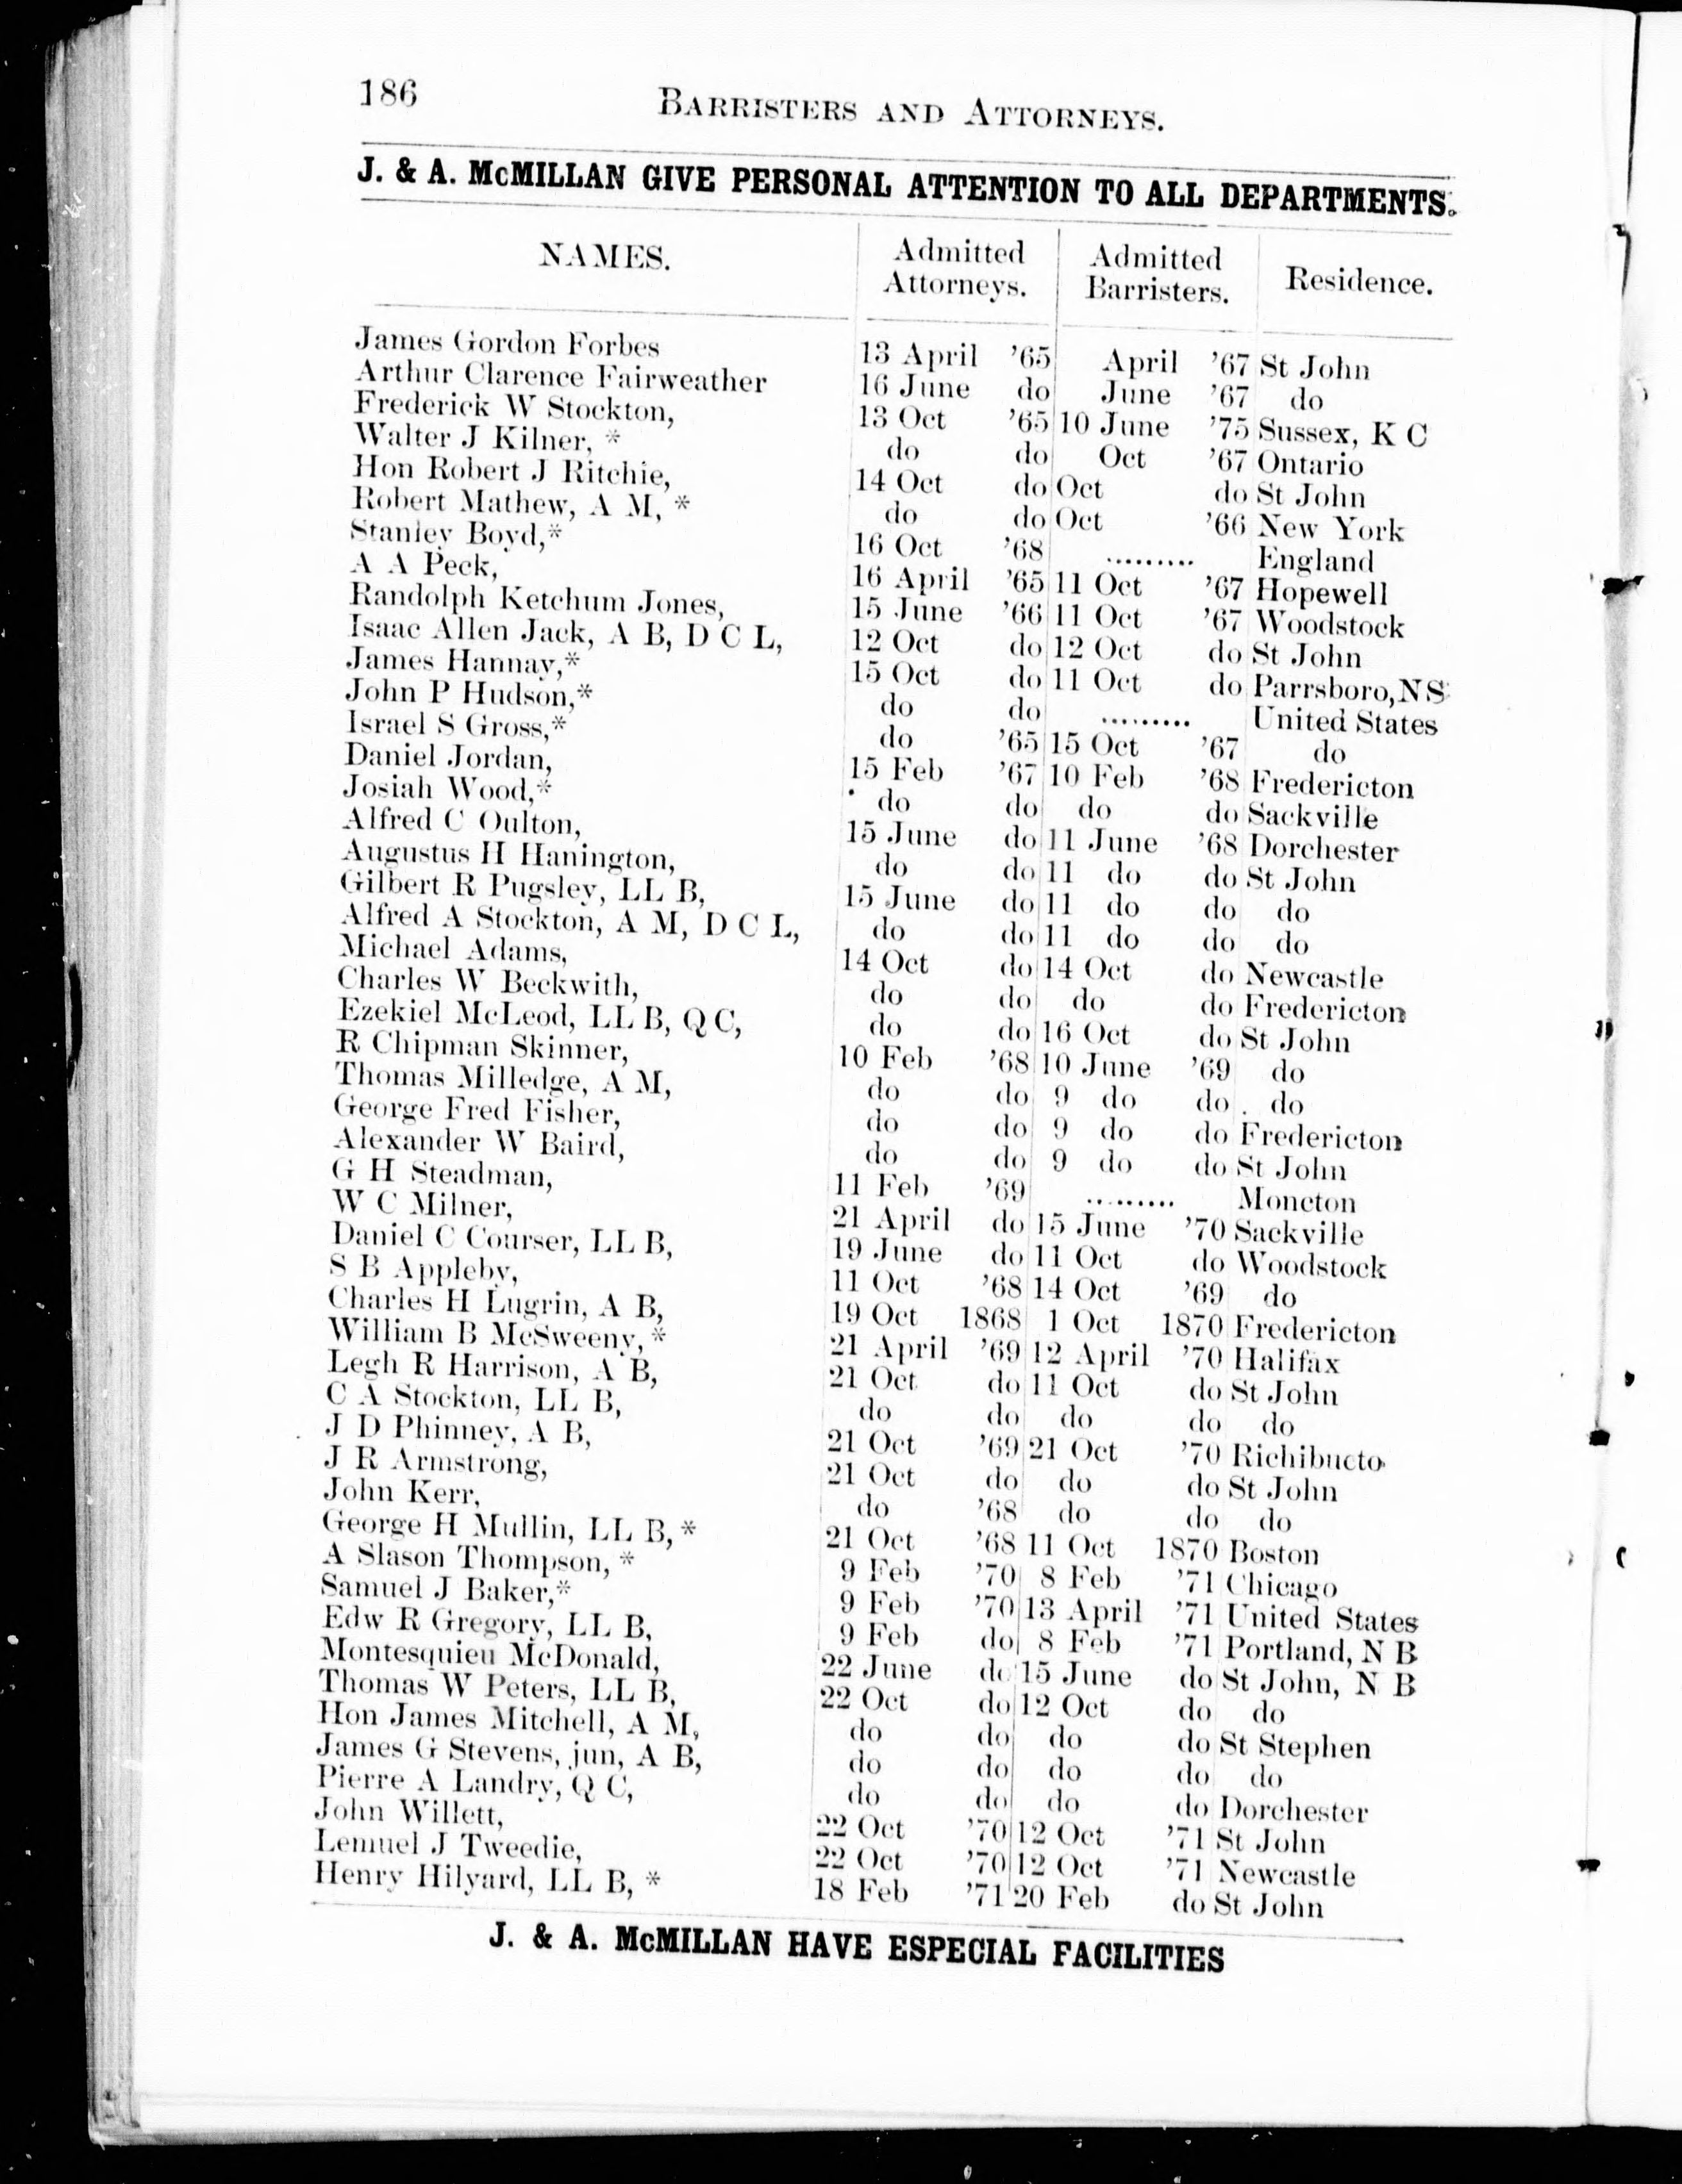 186 BARRISTERS AND ATTORNEYS.
J. & A. McMILLAN GIVE PERSONAL ATTENTION TO ALL DEPARTMENTS.
NAMES. Admitted Attorneys. Admitted Barristers. Residence.
James Gordon Forbes 13 April ’65 April ’67 St John
Arthur Clarence Fairweather 16 June do June ’67 do
Frederick W Stockton, 13 Oct ’65 10 June ’75 Sussex, K C
Walter J Kilner, * do do Oct ’67 Ontario
Hon Robert J Ritchie, 14 Oct do Oct do St John
Robert Mathew, A M, * do do Oct ’66 New York
Stanley Boyd,* 16 Oct ’68 ......... England
A A Peck, 16 April ’65 11 Oct ’67 Hopewell
Randolph Ketchum Jones, 15 June ’66 11 Oct ’67 Woodstock
Isaac Allen Jack, A B, D C L, 12 Oct do 12 Oct do St John
James Hannay,* 15 Oct do 11 Oct do Parrsboro, N S
John P Hudson,* do do ......... United States
Israel S Gross,* do ’65 15 Oct ’67 do
Daniel Jordan, 15 Feb ’67 10 Feb ’68 Fredericton
Josiah Wood,* do do do do Sackville
Alfred C Oulton, 15 June do 11 June ’68 Dorchester
Augustus H Hanington, do do 11 do do St John
Gilbert R Pugsley, LL B, 15 June do 11 do do do
Alfred A Stockton, A M, D C L, do do 11 do do do
Michael Adams, 14 Oct do 14 Oct do Newcastle
Charles W Beckwith, do do do do Fredericton
Ezekiel McLeod, LL B, Q C, do do 16 Oct do St John
R Chipman Skinner, 10 Feb ’68 10 June ’69 do
Thomas Milledge, A M, do do 9 do do do
George Fred Fisher, do do 9 do do Fredericton
Alexander W Baird, do do 9 do do St John
G H Steadman, 11 Feb ’69 ......... Moncton
W C Milner, 21 April do 15 June ’70 Sackville
Daniel C Courser, LL B, 19 June do 11 Oct do Woodstock
S B Appleby, 11 Oct ’68 14 Oct ’69 do
Charles H Lugrin, A B, 19 Oct 1868 1 Oct 1870 Fredericton
William B McSweeny, * 21 April ’69 12 April ’70 Halifax
Legh R Harrison, A B, 21 Oct do 11 Oct do St John
C A Stockton, LL B, do do do do do
J D Phinney, A B, 21 Oct ’69 21 Oct ’70 Richibucto
J R Armstrong, 21 Oct do do do St John
John Kerr, do ’68 do do do
George H Mullin, LL B, * 21 Oct ’68 11 Oct 1870 Boston
A Slason Thompson, * 9 Feb ’70 8 Feb ’71 Chicago
Samuel J Baker,* 9 Feb ’70 13 April ’71 United States
Edw R Gregory, LL B, 9 Feb do 8 Feb ’71 Portland, N B
Montesquieu McDonald, 22 June do 15 June do St John, N B
Thomas W Peters, LL B, 22 Oct do 12 Oct do do
Hon James Mitchell, A M, do do do do St Stephen
James G Stevens, jun, A B, do do do do do
Pierre A Landry, Q C, do do do do Dorchester
John Willett, 22 Oct ’70 12 Oct ’71 St John
Lemuel J Tweedie, 22 Oct ’70 12 Oct ’71 Newcastle
Henry Hilyard, LL B, * 18 Feb ’71 20 Feb do St John
J. & A. McMILLAN HAVE ESPECIAL FACILITIES